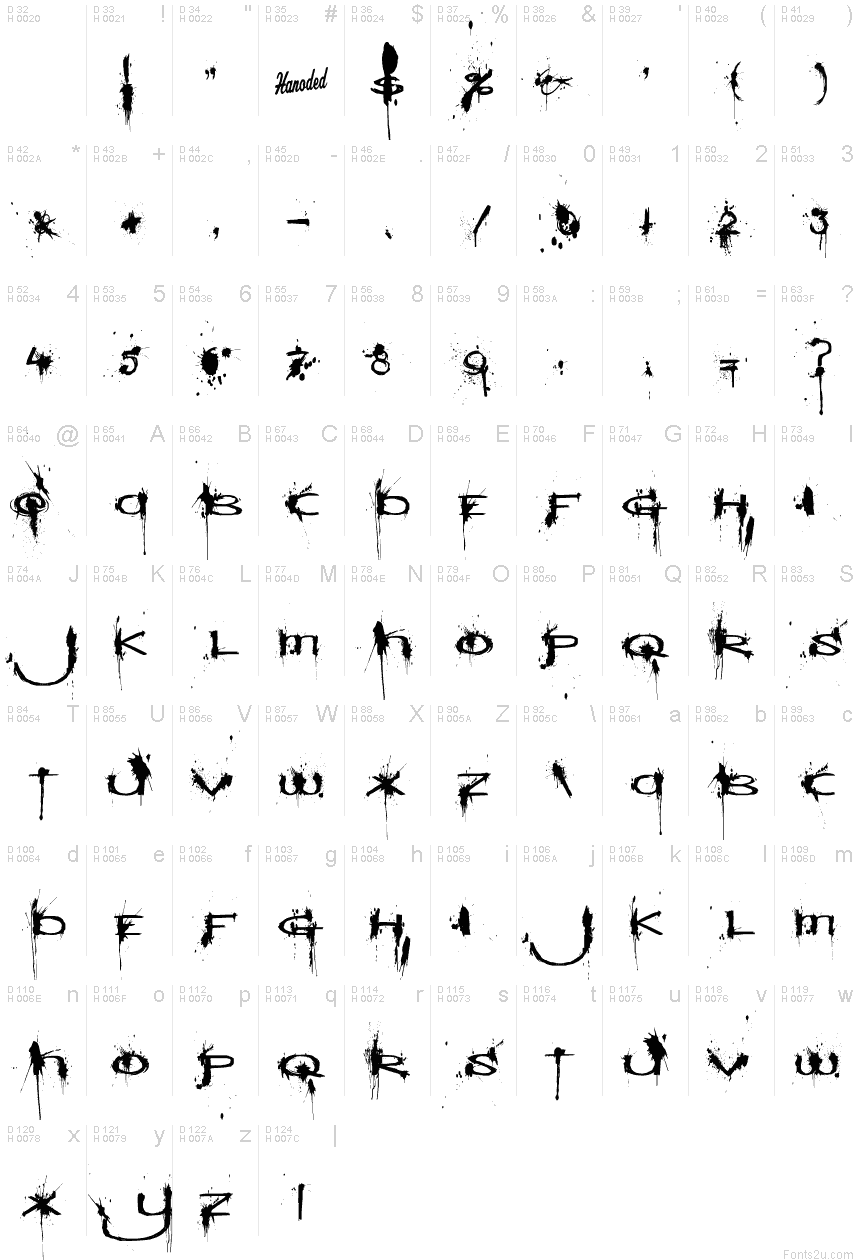 D 32 D 33 ! D 34 " D 35 # D 36 $ D 37 % D 38 & D 39 ' D 40 ( D 41 )
H 0020 H 0021 H 0022 H 0023 H 0024 H 0025 H 0026 H 0027 H 0028 H 0029
! " Hanoded $ % e ' ( )
D 42 * D 43 + D 44 , D 45 - D 46 . D 47 / D 48 0 D 49 1 D 50 2 D 51 3
H 002A H 002B H 002C H 002D H 002E H 002F H 0030 H 0031 H 0032 H 0033
* + , - . / 0 1 2 3
D 52 4 D 53 5 D 54 6 D 55 7 D 56 8 D 57 9 D 58 : D 59 ; D 61 = D 63 ?
H 0034 H 0035 H 0036 H 0037 H 0038 H 0039 H 003A H 003B H 003D H 003F
4 5 6 7 8 9 : ; = ?
D 64 @ D 65 A D 66 B D 67 C D 68 D D 69 E D 70 F D 71 G D 72 H D 73 I
H 0040 H 0041 H 0042 H 0043 H 0044 H 0045 H 0046 H 0047 H 0048 H 0049
@ a B C D E F G H I
D 74 J D 75 K D 76 L D 77 M D 78 N D 79 O D 80 P D 81 Q D 82 R D 83 S
H 004A H 004B H 004C H 004D H 004E H 004F H 0050 H 0051 H 0052 H 0053
J K L m n O P Q R S
D 84 T D 85 U D 86 V D 87 W D 88 X D 90 Z D 92 \ D 97 a D 98 b D 99 c
H 0054 H 0055 H 0056 H 0057 H 0058 H 005A H 005C H 0061 H 0062 H 0063
T U V W X Z \ a B C
D 100 d D 101 e D 102 f D 103 g D 104 h D 105 i D 106 j D 107 k D 108 l D 109 m
H 0064 H 0065 H 0066 H 0067 H 0068 H 0069 H 006A H 006B H 006C H 006D
D E F G H I J K L m
D 110 n D 111 o D 112 p D 113 q D 114 r D 115 s D 116 t D 117 u D 118 v D 119 w
H 006E H 006F H 0070 H 0071 H 0072 H 0073 H 0074 H 0075 H 0076 H 0077
n O P Q R S T U V W
D 120 x D 121 y D 122 z D 124 |
H 0078 H 0079 H 007A H 007C
X y Z |
Fonts2u.com